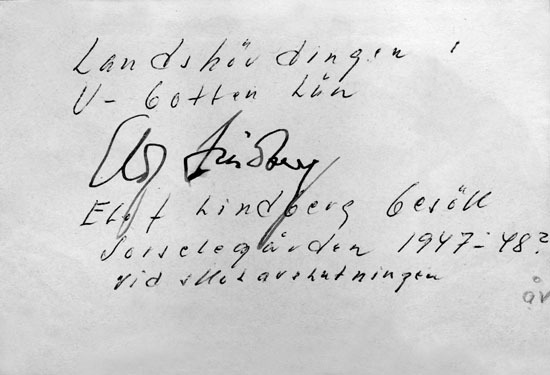 Landshövdingen i
V-Botten Län
Elof Lindberg
Elof Lindberg besök
Sorselegården 1947-48?
vid
år